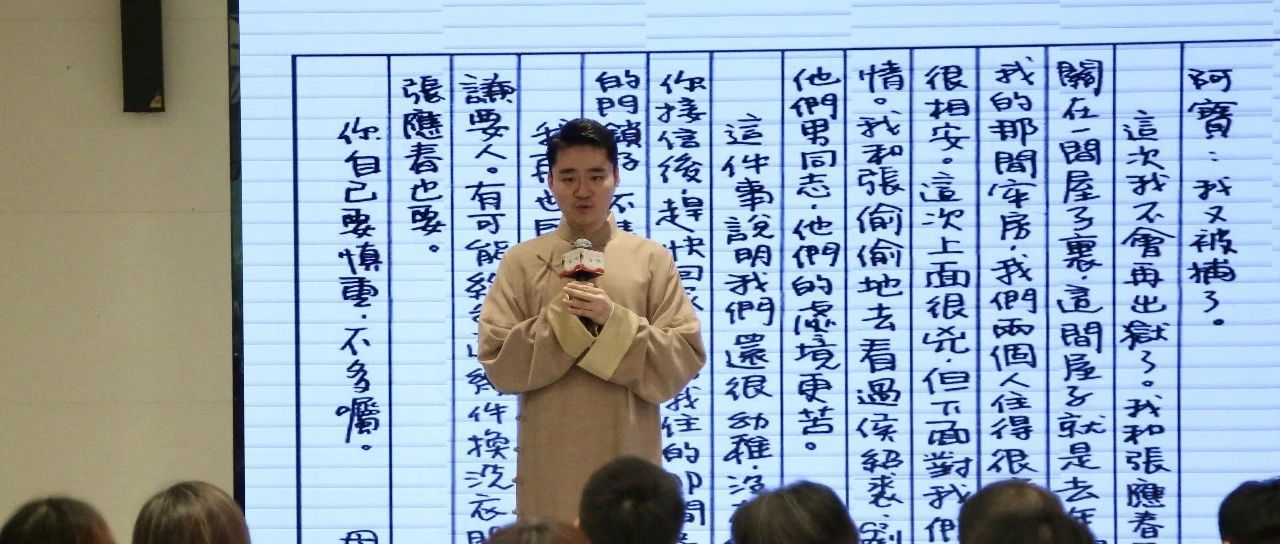 阿寶：我又被捕了。
這次我不會再出獄了。我和張應春
關在一間屋子裏，這間屋子就是去年
我的那間牢房，我們兩個人住得很
很相安。這次上面很兇，但下面對我們
情。我和張偷偷地去看過侯紹裘，劉
他們男同志，他們的處境更苦。
這件事說明我們還很幼稚，沒
你接信後，趕快回家我住的那間
的門鎖好，不
我再也
謙要人。有可能給件換洗衣
張應春也要。
你自己要慎重，不多囑。
母